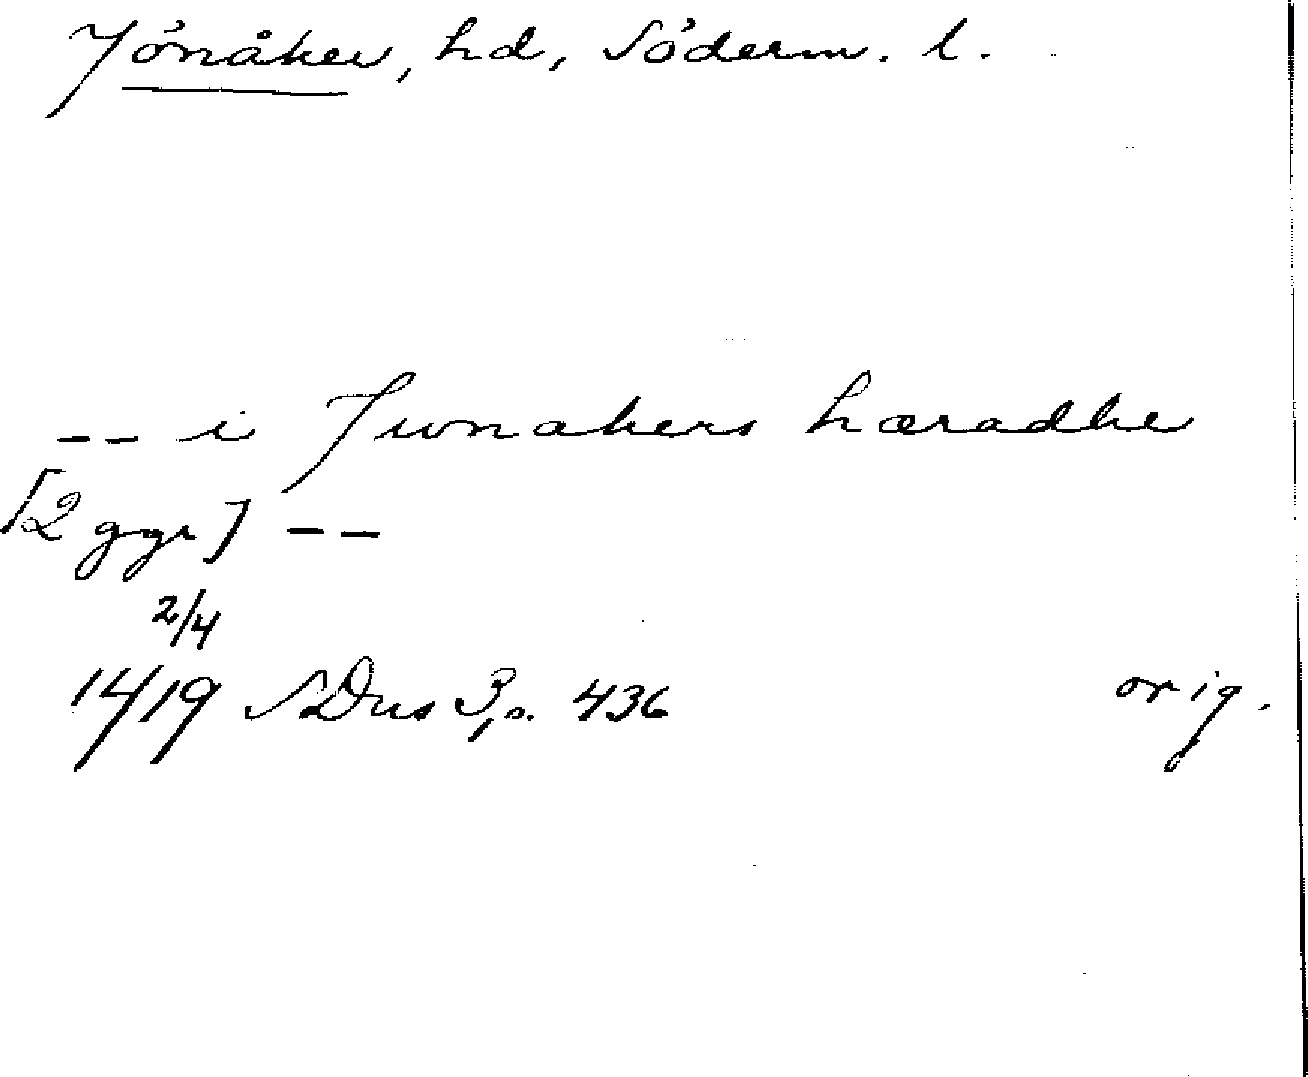 Jönåker, hd, Söderm. l.
-- i Jwnakers hæradhe
[2 ggr] --
2/4
1419 SDns 3, s. 436 orig.